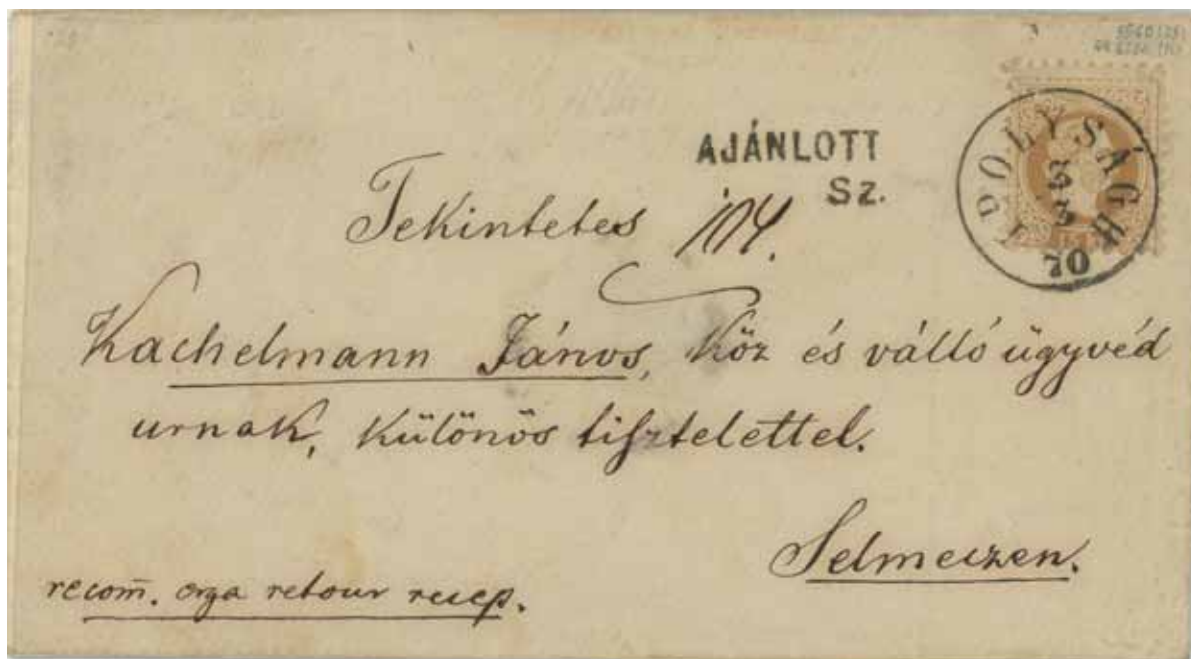 AJÁNLOTT
Sz.
IPOLYSÁGH
70
Tekintetes
104.
Kachelmann János, köz és váltó ügyvéd
urnak, különös tisztelettel.
Selmeczen.
recom̄. orga retour recep.